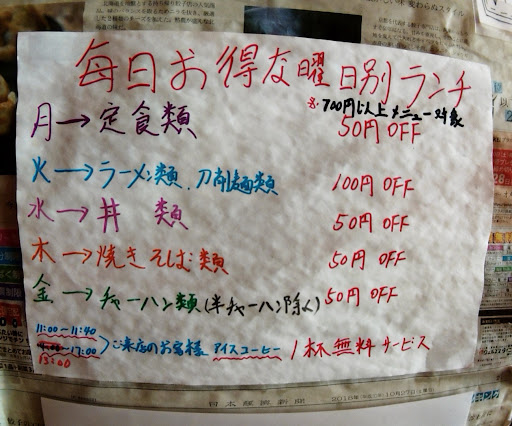 毎日お得な曜日別ランチ
※700円以上メニュー対象
月→定食類 50円OFF
火→ラーメン類、刀削麺類 100円OFF
水→丼類 50円OFF
木→焼きそば類 50円OFF
金→チャーハン類(半チャーハン除く) 50円OFF
11:00〜11:40
〜17:00 ご来店のお客様 アイスコーヒー 1杯無料サービス
13:00
日本経済新聞